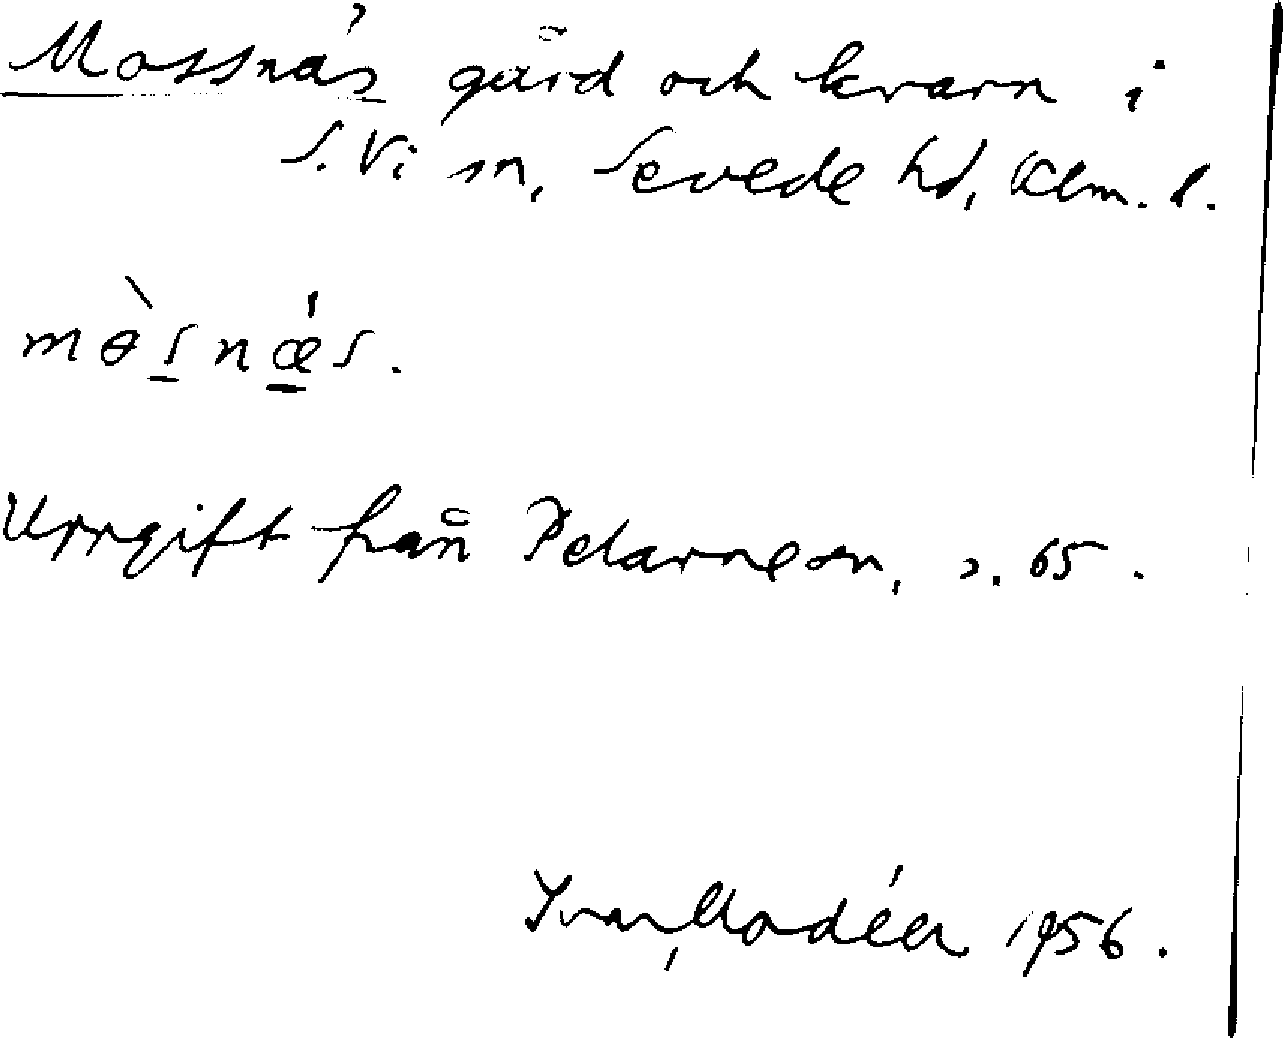 Mossnäs gård och kvarn i
S. Vi sn, Sevede hd, Klm. l.
mɵ̀s̲nǽ̲s.
Uppgift från Pelarneson, s. 65.
Ivar Modéer 1956.